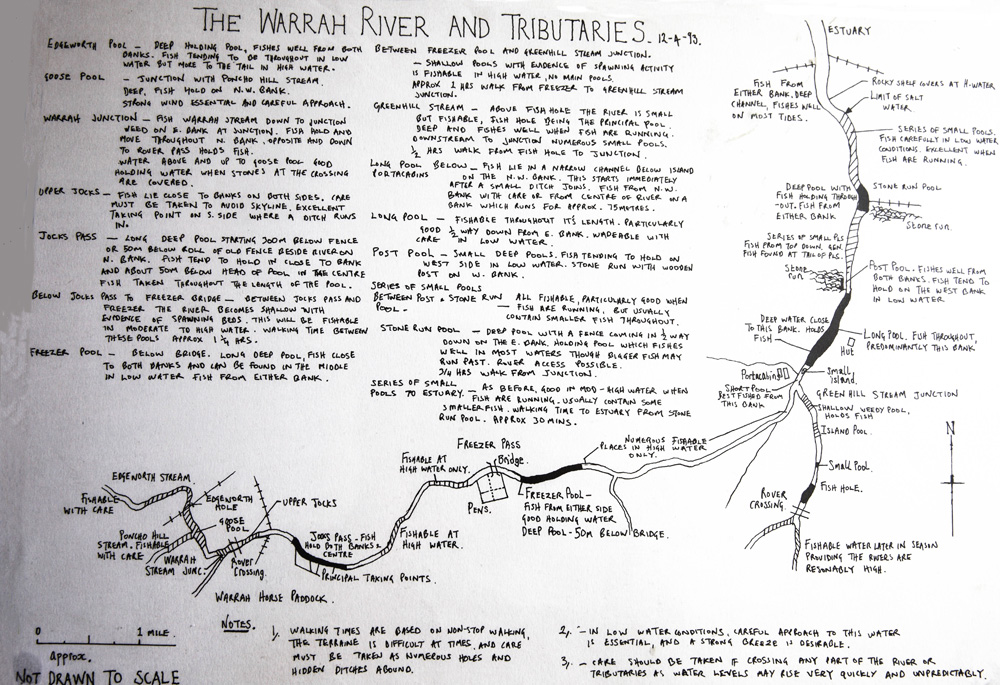 THE WARRAH RIVER AND TRIBUTARIES. 12-4-93.
EDGEWORTH POOL – DEEP HOLDING POOL, FISHES WELL FROM BOTH
BANKS. FISH TENDING TO BE THROUGHOUT IN LOW
WATER BUT MORE TO THE TAIL IN HIGH WATER.
GOOSE POOL – JUNCTION WITH PONCHO HILL STREAM.
DEEP, FISH HOLD ON N.W. BANK.
STRONG WIND ESSENTIAL AND CAREFUL APPROACH.
WARRAH JUNCTION – FISH WARRAH STREAM DOWN TO JUNCTION
WEED ON E. BANK AT JUNCTION. FISH HOLD AND
MOVE THROUGHOUT N. BANK. OPPOSITE AND DOWN
TO ROVER PASS HOLDS FISH.
WATER ABOVE AND UP TO GOOSE POOL GOOD
HOLDING WATER WHEN STONES AT THE CROSSING
ARE COVERED.
UPPER JOCKS – FISH LIE CLOSE TO BANKS ON BOTH SIDES. CARE
MUST BE TAKEN TO AVOID SKYLINE, EXCELLENT
TAKING POINT ON S. SIDE WHERE A DITCH RUNS
IN.
JOCKS PASS – LONG DEEP POOL STARTING 200M BELOW FENCE
OR 50M BELOW ROLL OF OLD FENCE BESIDE RIVER ON
N. BANK. FISH TEND TO HOLD IN CLOSE TO BANK
AND ABOUT 50M BELOW HEAD OF POOL IN THE CENTRE
FISH TAKEN THROUGHOUT THE LENGTH OF THE POOL.
BELOW JOCKS PASS TO FREEZER BRIDGE – BETWEEN JOCKS PASS AND
FREEZER THE RIVER BECOMES SHALLOW WITH
EVIDENCE OF SPAWNING BEDS. THIS WILL BE FISHABLE
IN MODERATE TO HIGH WATER. WALKING TIME BETWEEN
THESE POOLS APPROX 1 1/4 HRS.
FREEZER POOL – BELOW BRIDGE. LONG DEEP POOL, FISH CLOSE
TO BOTH BANKS AND CAN BE FOUND IN THE MIDDLE
IN LOW WATER FISH FROM EITHER BANK.
BETWEEN FREEZER POOL AND GREENHILL STREAM JUNCTION.
– SHALLOW POOLS WITH EVIDENCE OF SPAWNING ACTIVITY
IS FISHABLE IN HIGH WATER, NO MAIN POOLS.
APPROX 2 HRS WALK FROM FREEZER TO GREENHILL STREAM
JUNCTION.
GREENHILL STREAM – ABOVE FISH HOLE THE RIVER IS SMALL
BUT FISHABLE, FISH HOLE BEING THE PRINCIPAL POOL.
DEEP AND FISHES WELL WHEN FISH ARE RUNNING.
DOWNSTREAM TO JUNCTION NUMEROUS SMALL POOLS.
1/2 HRS WALK FROM FISH HOLE TO JUNCTION.
LONG POOL BELOW – FISH LIE IN A NARROW CHANNEL BELOW ISLAND
PORTACABINS ON THE N.W. BANK. THIS STARTS IMMEDIATELY
AFTER A SMALL DITCH JOINS. FISH FROM N.W.
BANK WITH CARE OR FROM CENTRE OF RIVER ON A
BANK WHICH RUNS FOR APPROX. 75 METRES.
LONG POOL – FISHABLE THROUGHOUT IT'S LENGTH. PARTICULARLY
GOOD 1/2 WAY DOWN FROM E. BANK. WADEABLE WITH
CARE IN LOW WATER.
POST POOL – SMALL DEEP POOLS. FISH TENDING TO HOLD ON
WEST SIDE IN LOW WATER. STONE RUN WITH WOODEN
POST ON W. BANK.
SERIES OF SMALL POOLS
BETWEEN POST & STONE RUN ALL FISHABLE, PARTICULARLY GOOD WHEN
POOL. – FISH ARE RUNNING, BUT USUALLY
CONTAIN SMALLER FISH THROUGHOUT.
STONE RUN POOL – DEEP POOL WITH A FENCE COMING IN 1/2 WAY
DOWN ON THE E. BANK. HOLDING POOL WHICH FISHES
WELL IN MOST WATERS THOUGH BIGGER FISH MAY
RUN PAST. ROVER ACCESS POSSIBLE.
3/4 HRS WALK FROM JUNCTION.
SERIES OF SMALL – AS BEFORE, GOOD IN MOD-HIGH WATER WHEN
POOLS TO ESTUARY. FISH ARE RUNNING. USUALLY CONTAIN SOME
SMALLER FISH. WALKING TIME TO ESTUARY FROM STONE
RUN POOL. APPROX 30 MINS.
ESTUARY
FISH FROM
EITHER BANK. DEEP
CHANNEL, FISHES WELL
ON MOST TIDES.
ROCKY SHELF COVERS AT H-WATER
LIMIT OF SALT
WATER.
SERIES OF SMALL POOLS.
FISH CAREFULLY IN LOW WATER
CONDITIONS. EXCELLENT WHEN
FISH ARE RUNNING.
DEEP POOL WITH
FISH HOLDING THROUGH
-OUT. FISH FROM
EITHER BANK
STONE RUN POOL
Stone run.
SERIES OF SMALL PLS
FISH FROM TOP DOWN. GEN.
FISH FOUND AT TAIL OF PLS.
Stone
run.
POST POOL. FISHES WELL FROM
BOTH BANKS. FISH TEND TO
HOLD ON THE WEST BANK
IN LOW WATER
DEEP WATER CLOSE
TO THIS BANK. HOLDS
FISH
Hut
LONG POOL. FISH THROUGHOUT,
PREDOMINANTLY THIS BANK
Portacabins
Small
island.
SHORT POOL
BEST FISHED FROM
THIS BANK
GREENHILL STREAM JUNCTION
SHALLOW WEEDY POOL,
HOLDS FISH
ISLAND POOL.
SMALL POOL.
FISH HOLE.
ROVER
CROSSING.
FISHABLE WATER LATER IN SEASON
PROVIDING THE RIVERS ARE
RESONABLY HIGH.
N
NUMEROUS FISHABLE
PLACES IN HIGH WATER
ONLY.
FREEZER PASS
FISHABLE AT
HIGH WATER ONLY.
Bridge.
PENS.
FREEZER POOL –
FISH FROM EITHER SIDE
GOOD HOLDING WATER
DEEP POOL – 50M BELOW BRIDGE.
EDGEWORTH STREAM.
FISHABLE
WITH CARE
EDGEWORTH
HOLE
GOOSE
POOL
UPPER JOCKS
PONCHO HILL
STREAM. FISHABLE
WITH CARE
WARRAH
STREAM JUNC.
ROVER
Crossing.
JOCKS PASS – FISH
HOLD BOTH BANKS &
CENTRE
FISHABLE AT
HIGH WATER.
PRINCIPAL TAKING POINTS.
WARRAH HORSE PADDOCK.
0 1 MILE.
approx.
NOT DRAWN TO SCALE
NOTES.
1/. WALKING TIMES ARE BASED ON NON-STOP WALKING,
THE TERRAINE IS DIFFICULT AT TIMES, AND CARE
MUST BE TAKEN AS NUMEROUS HOLES AND
HIDDEN DITCHES ABOUND.
2/. – IN LOW WATER CONDITIONS, CAREFUL APPROACH TO THIS WATER
IS ESSENTIAL, AND A STRONG BREEZE IS DESIRABLE.
3/. – CARE SHOULD BE TAKEN IF CROSSING ANY PART OF THE RIVER OR
TRIBUTARIES AS WATER LEVELS MAY RISE VERY QUICKLY AND UNPREDICTABLY.